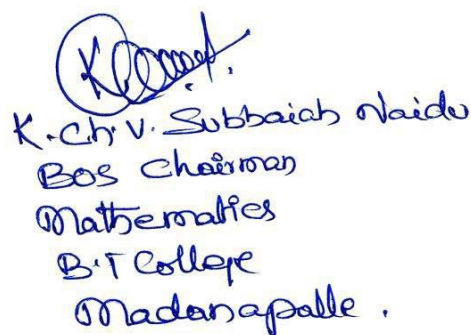 K. Ch. V. Subbaiah Naidu
BOS Chairman
Mathematics
B.T College
Madanapalle.